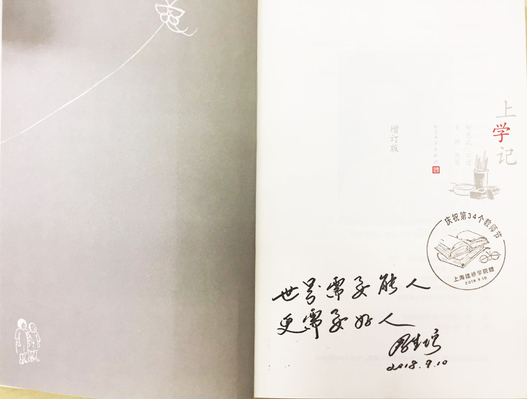 上学记
增订版
庆祝第34个教师节
上海建桥学院赠
2018.9.10
世界需要能人
更需要好人
2018.9.10